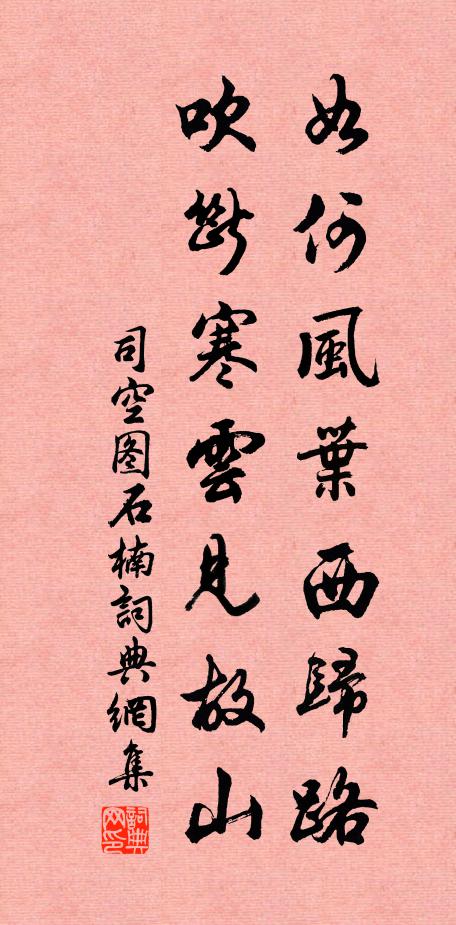 如何風葉西歸路
吹斷寒雲見故山
司空图石楠詞典網集
詞典网印